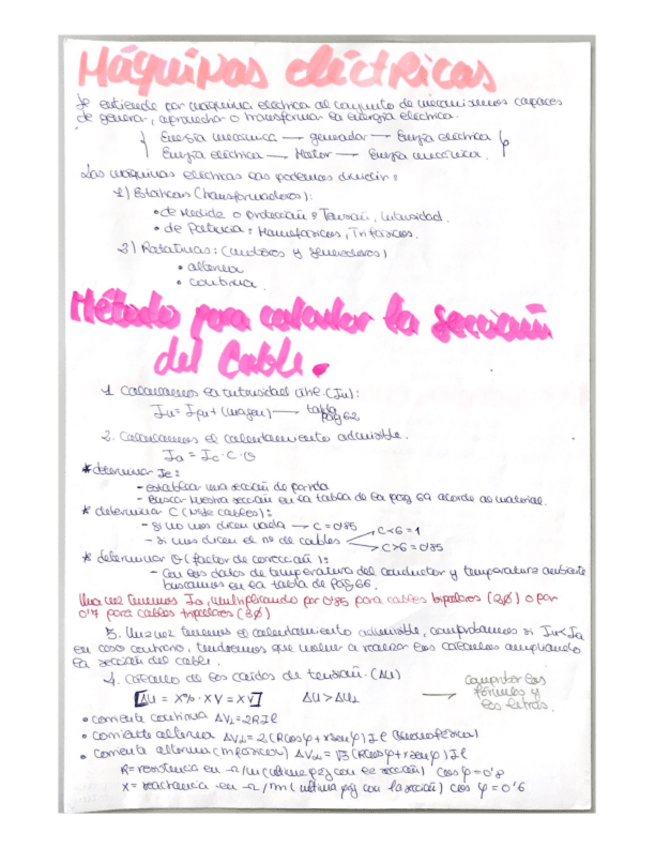 Máquinas eléctricas
Se entiende por máquina eléctrica al conjunto de mecanismos capaces
de generar, aprovechar o transformar la energía eléctrica.
Energía mecánica — generador — Energía eléctrica
Energía eléctrica — Motor — Energía mecánica.
Las máquinas eléctricas las podemos dividir:
1) Estáticas (transformadores):
• de Medida o protección: Tensión, intensidad.
• de Potencia: Monofásicos, Trifásicos.
2) Rotativas: (motores y generadores)
• alterna
• continua.
Método para calcular la sección
del Cable.
1. Calculamos la intensidad (Iu):
Iu = + (margen) — tabla
pág 62
2. Calculamos el calentamiento admisible.
Ia = Ic · C · Θ
* determinar Ic:
- establecer una sección de partida
- Buscar nuestra sección en la tabla de la pág 69 acorde al material.
* determinar C (nº de cables):
- si no nos dicen nada → C = 0'85
- si nos dicen el nº de cables
C<6 = 1
C>6 = 0'85
* determinar Θ (factor de corrección):
- Con los datos de temperatura del conductor y temperatura ambiente
buscamos en la tabla de pág 66.
Una vez tenemos Ia, multiplicando por 0'85 para cables bipolares (2Ø) o por
0'7 para cables tripolares (3Ø)
3. Una vez tenemos el calentamiento admisible, comprobamos si Iu<Ia
en caso contrario, tendremos que volver a realizar los cálculos ampliando
la sección del cable.
4. Cálculo de las caídas de tensión. (ΔU)
ΔU = X% · XV = XV
Comprobar las
fórmulas y
las letras.
• corriente continua = 2RIl
• corriente alterna = 2(Rcosφ+xsenφ)Il (Monofásica)
• corriente alterna (trifásica) = √3 (Rcosφ+xsenφ)Il
R = resistencia en Ω/m (última pág con la sección) cos φ = 0'8
X = reactancia en Ω/m (última pág con la sección) cos φ = 0'6